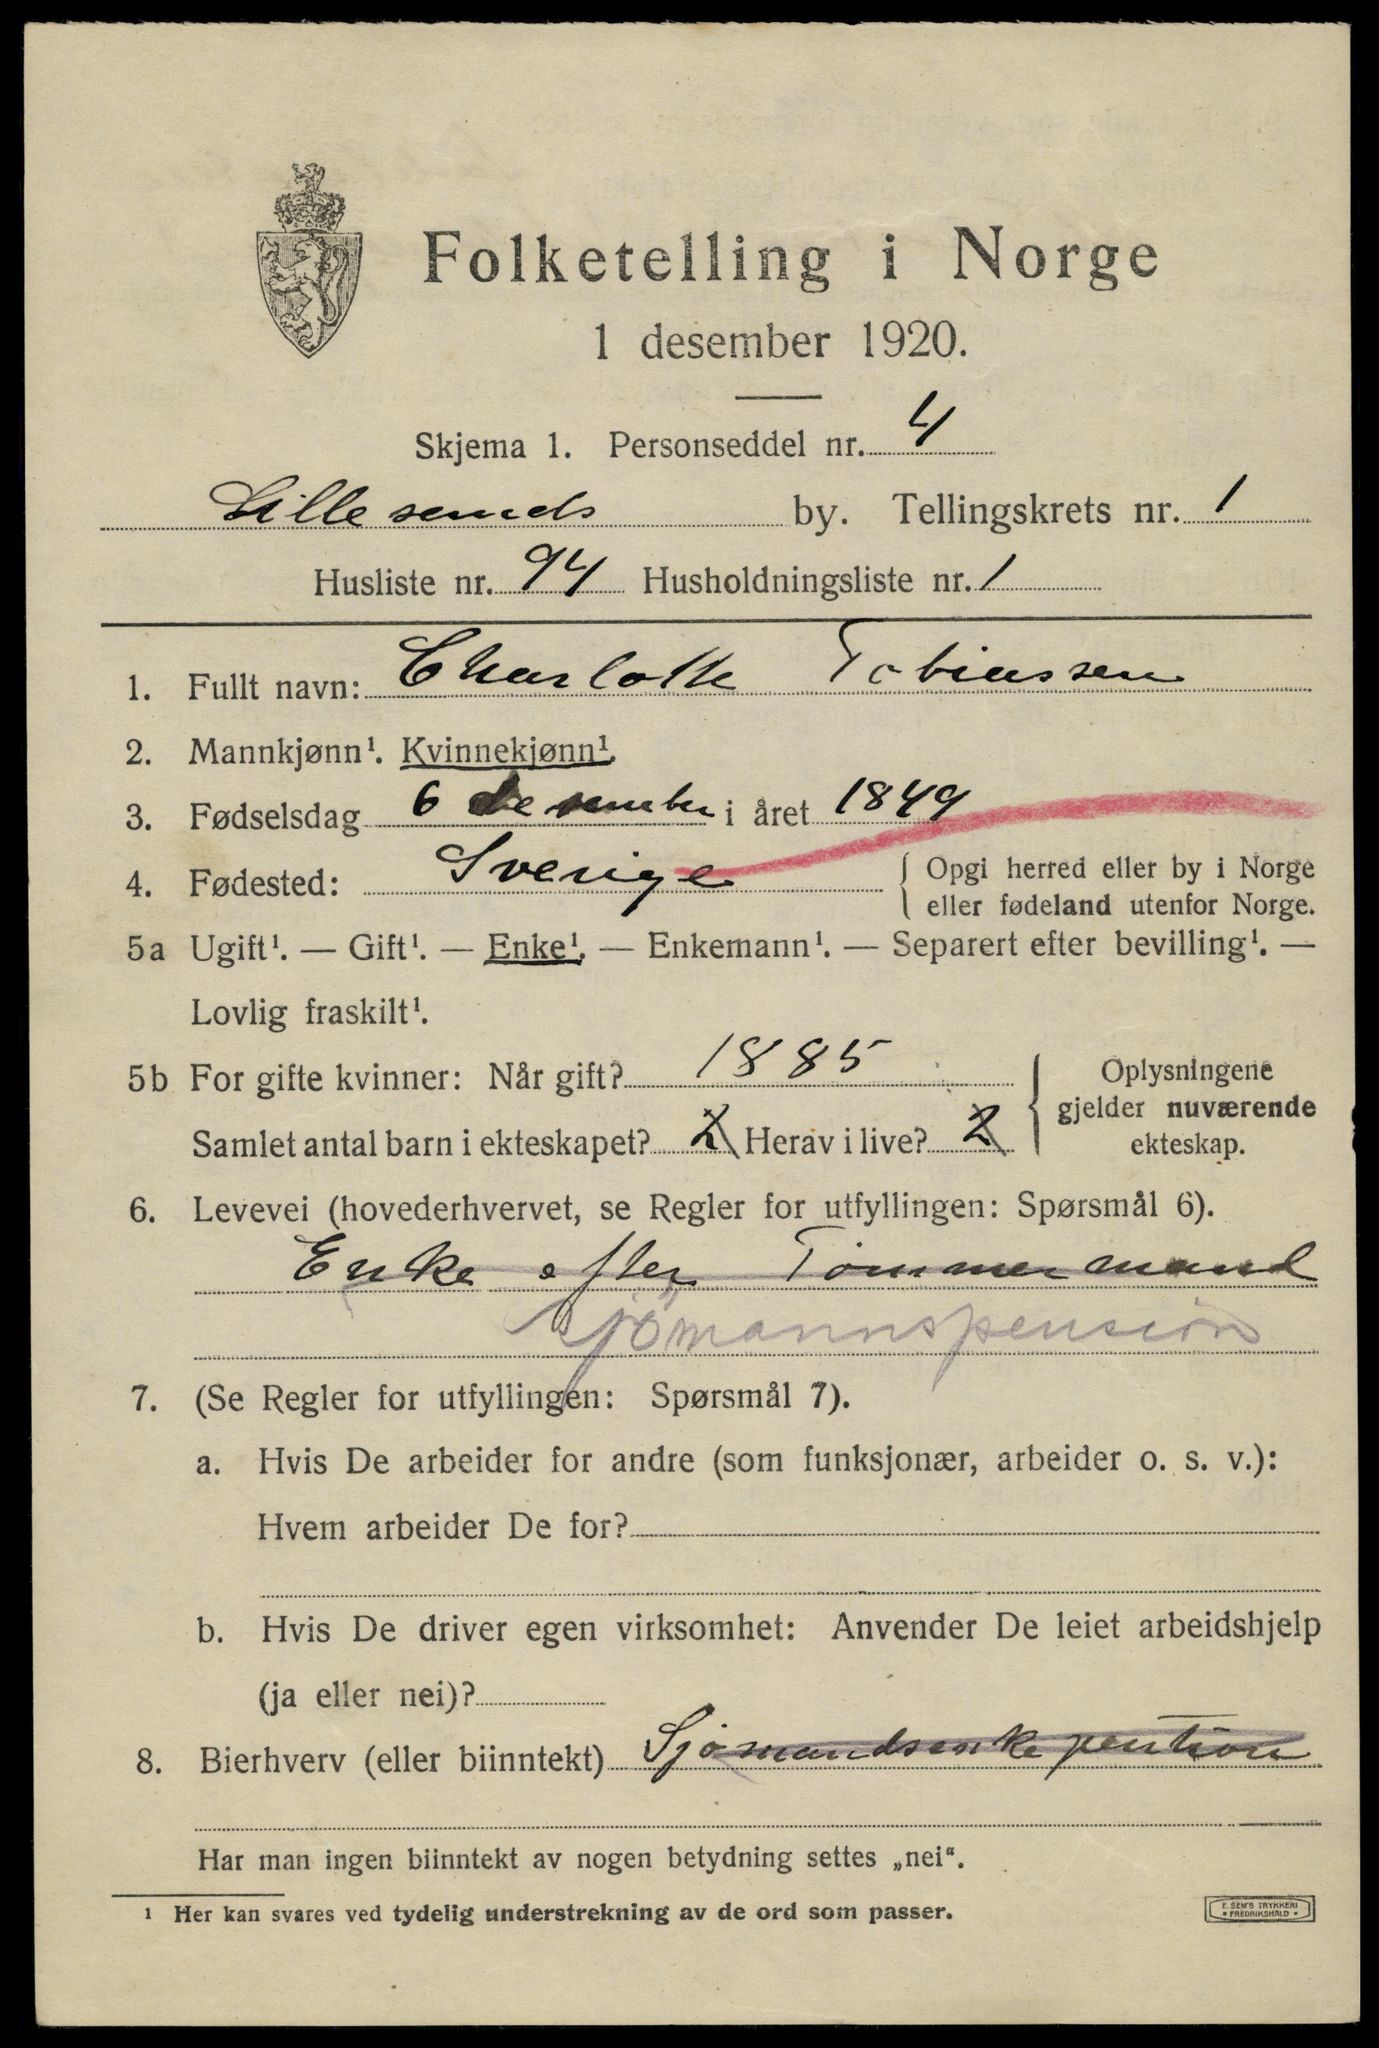 Folketelling i Norge
1 desember 1920.
Skjema 1. Personseddel nr. 4
Lillesands by. Tellingskrets nr. 1
Husliste nr. 94 Husholdningsliste nr. 1
1. Fullt navn: Charlotte Tobiassen
2. Mannkjønn¹. Kvinnekjønn¹.
3. Fødselsdag 6 desember i året 1849
4. Fødested: Sverige { Opgi herred eller by i Norge
eller fødeland utenfor Norge.
5a Ugift¹. — Gift¹. — Enke¹. — Enkemann¹. — Separert efter bevilling¹. —
Lovlig fraskilt¹.
5b For gifte kvinner: Når gift? 1885
Samlet antal barn i ekteskapet? 2 Herav i live? 2
{ Oplysningene
gjelder nuværende
ekteskap.
6. Levevei (hovederhvervet, se Regler for utfyllingen: Spørsmål 6).
Enke efter Tømmermand
Sjömannspension
7. (Se Regler for utfyllingen: Spørsmål 7).
a. Hvis De arbeider for andre (som funksjonær, arbeider o. s. v.):
Hvem arbeider De for?
b. Hvis De driver egen virksomhet: Anvender De leiet arbeidshjelp
(ja eller nei)?
8. Bierhverv (eller biinntekt) Sjømandsenkepention
Har man ingen biinntekt av nogen betydning settes „nei“.
¹ Her kan svares ved tydelig understrekning av de ord som passer.
E. SEM'S TRYKKERI
• FREDRIKSHALD •